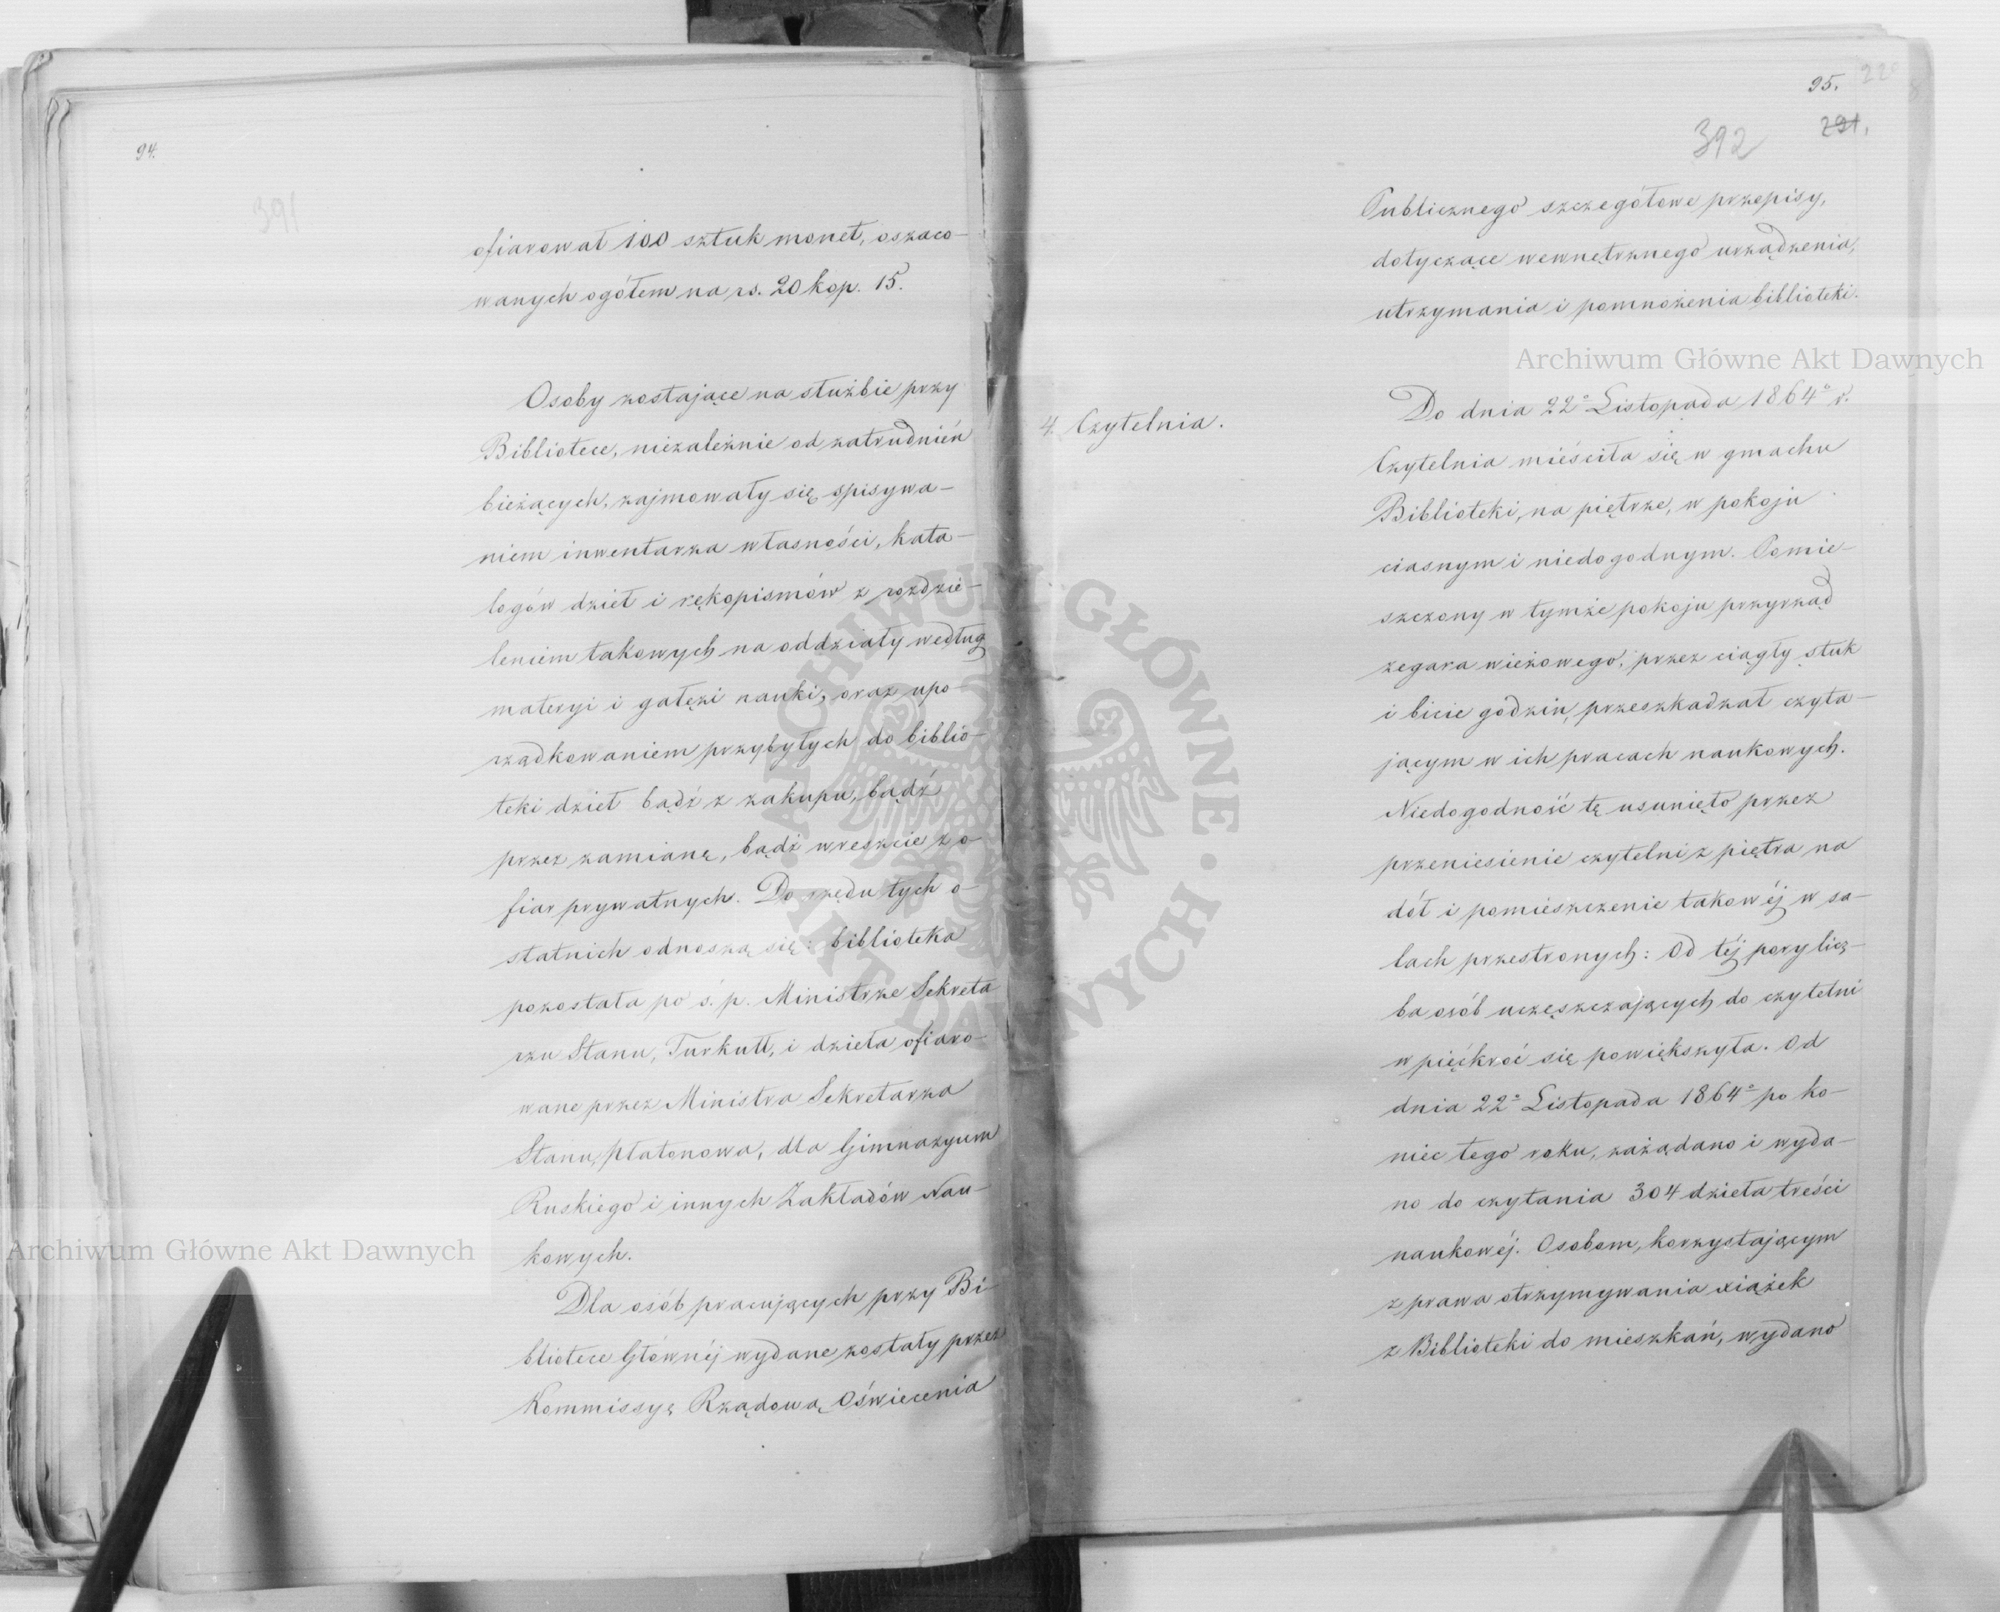 94.
391
ofiarował 100 sztuk monet, oszaco-
wanych ogółem na rs. 20 kop. 15.
Osoby zostające na służbie przy
Bibliotece, niezależnie od zatrudnień
bieżących, zajmowały się spisywa-
niem inwentarza własności, kata-
logów dzieł i rękopismów z rozdzie-
leniem takowych na oddziały według
materyi i gałęzi nauki, oraz upo-
rządkowaniem przybyłych do biblio-
teki dzieł bądź z zakupu, bądź
przez zamianę, bądź wreszcie z o-
fiar prywatnych. Do rzędu tych o-
statnich odnoszą się: biblioteka
pozostała po ś. p. Ministrze Sekreta
rzu Stanu, Turkułł, i dzieła ofiaro-
wane przez Ministra Sekretarza
Stanu, Płatonowa, dla Gimnazyum
Ruskiego i innych Zakładów Nau-
kowych.
Dla osób pracujących przy Bi-
bliotece Głównéj wydane zostały przez
Kommissyę Rządową Oświecenia
95.
392
291.
Publicznego szczegółowe przepisy,
dotyczące wewnętrznego urządzenia,
utrzymania i pomnożenia biblioteki.
4. Czytelnia.
Do dnia 22º Listopada 1864º r.
Czytelnia mieściła się w gmachu
Biblioteki, na piętrze, w pokoju
ciasnym i niedogodnym. Pomie-
szczony w tymże pokoju przyrząd
zegara wieżowego, przez ciągły stuk
i bicie godzin, przeszkadzał czyta-
jącym w ich pracach naukowych.
Niedogodność tę usunięto przez
przeniesienie czytelni z piętra na
dół i pomieszczenie takowéj w sa-
lach przestronych: Od téj pory licz-
ba osób uczęszczających do czytelni
w pięćkroć się powiększyła. Od
dnia 22º Listopada 1864º po ko-
niec tego roku, zażądano i wyda-
no do czytania 304 dzieła treści
naukowéj. Osobom, korzystającym
z prawa otrzymywania xiążek
z Biblioteki do mieszkań, wydano
Archiwum Główne Akt Dawnych
Archiwum Główne Akt Dawnych
ARCHIWUM GŁÓWNE · AKT DAWNYCH ·